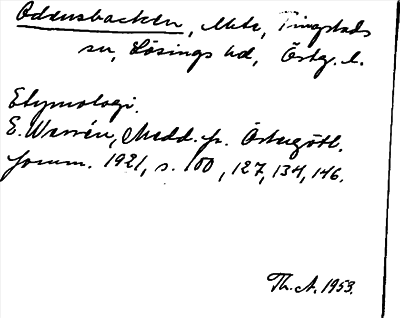 Odensbacken, Meta, Tingstads
sn, Lösings hd, Östg. l.
Etymologi.
E. Wessén, Medd. fr. Östergötl.
fornm. 1921, s. 100, 127, 134, 146.
Th. A. 1953.